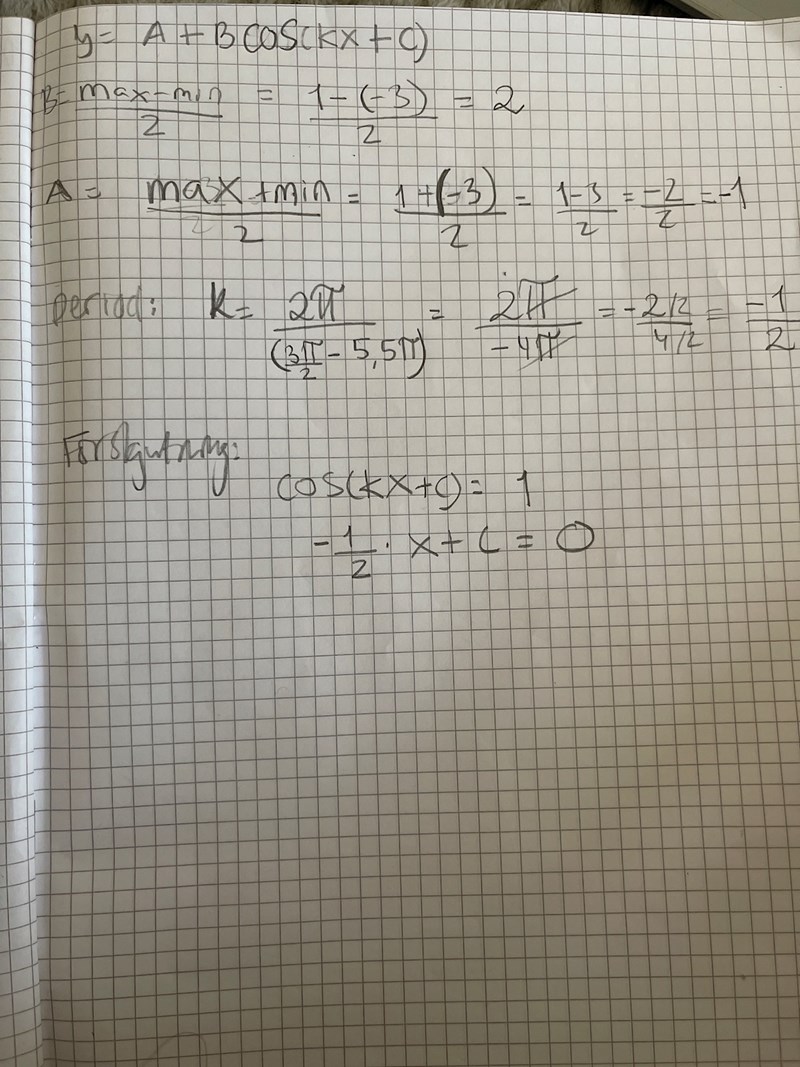 y = A + B cos(kx + c)
B = max - min / 2 = 1 - (-3) / 2 = 2
A = max + min / 2 = 1 + (-3) / 2 = 1-3 / 2 = -2 / 2 = -1
period: k = 2π / (3π/2 - 5,5π) = 2π / -4π = - 2/2 / 4/2 = -1 / 2
Förskjutning:
cos(kx+c) = 1
-1/2 · x + c = 0